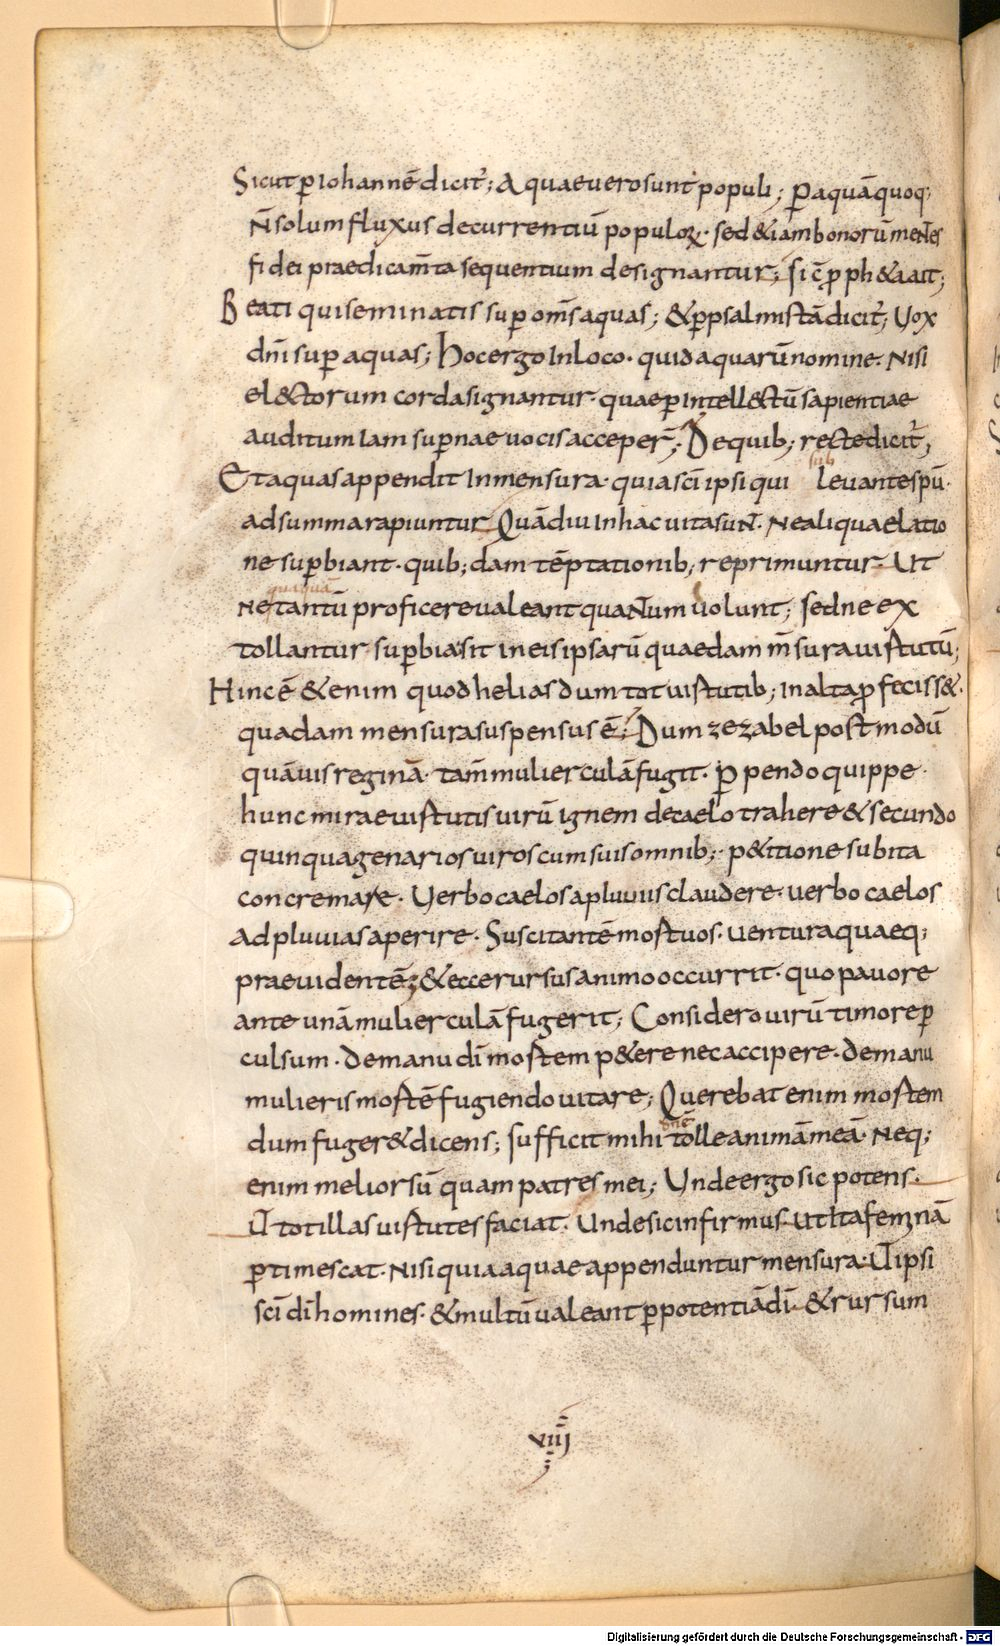 Sicut ꝑ iohannē dicit̄; Aquae uero sunt populi; Ꝑ aquā quoq;
N̄ solum fluxus decurrentiū populoꝝ· sed & iam bonorū mentes
fidei praedicam̄ta sequentium designantur; sic̄ ꝓph&a ait;
Beati qui seminatis suꝑ om̄s aquas; & ꝑ psalmistā dicit̄; Uox
dn̄i suꝑ aquas; Hoc ergo In loco· quid aquarū nomine· Nisi
el&torum corda signantur· quae ꝑ intell&tū sapientiae
auditum Iam suꝑnae uocis acceper̄; De quib; recte dicit̄;
sub
Et aquas appendit In mensura· quia sc̄i ipsi qui leuante sp̄u·
ad summa rapiuntur Quādiu In hac uita sunt· Ne aliqua elatio
ne suꝑbiant· quib;dam tēptationib; reprimuntur· Ut
quāquā
Ne tantū proficere ualeant quantum uolunt; sed ne ex
tollantur suꝑbia sit in eis ipsarū quaedam m̄sura uirtutū;
Hinc ē & enim quod helias dum tot uirtutib; In alta ꝓfeciss&·
quadam mensura suspensus ē; Dum zezabel postmodū
quāuis reginā· tam̄ mulierculā fugit· Ꝑpendo quippe·
hunc mirae uirtutis uirū ignem de caelo trahere & secundo
quinquagenarios uiros cum suis omnib; p&itione subita
concremare· Uerbo caelos a pluuiis claudere· uerbo caelos
Ad pluuias aperire· Suscitantē mortuos· uentura quaeq;
praeuidentē; & ecce rursus animo occurrit· quo pauore
ante unā mulierculā fugerit; Considero uirū timore ꝑ
culsum· de manu dī mortem p&ere nec accipere· de manu
mulieris mortē fugiendo uitare; Querebat enim mortem
dum fuger& dicens; sufficit mihi tolle animā meā· Neq;
dn̄e
enim melior sū quam patres mei; Unde ergo sic potens·
Ut tot illas uirtutes faciat· Unde sic infirmus ut Ita feminā
ꝑtimescat· Nisi quia aquae appenduntur mensura· Ut ipsi
sc̄i dī homines· & multū ualeant ꝑ potentiā dī· & rursum
viiij